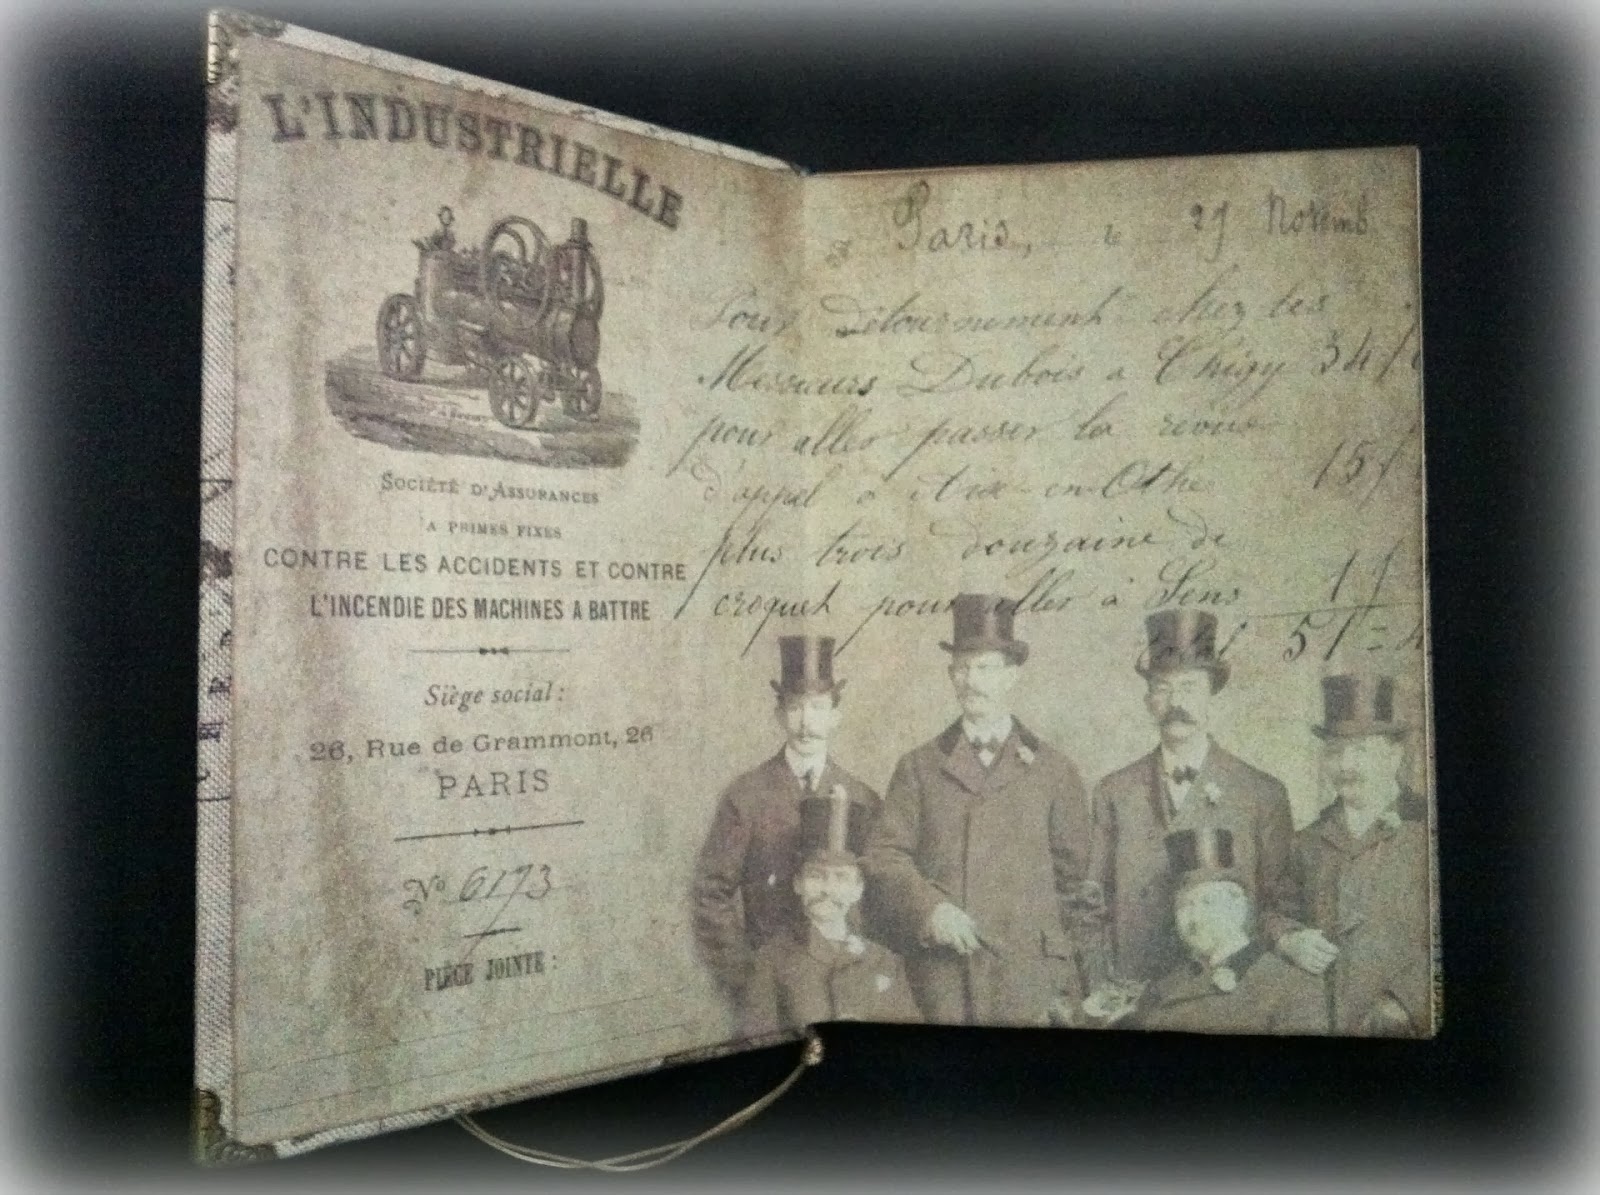 L'INDUSTRIELLE
SOCIÉTÉ D'ASSURANCES
A PRIMES FIXES
CONTRE LES ACCIDENTS ET CONTRE
L'INCENDIE DES MACHINES A BATTRE
Siège social :
26, Rue de Grammont, 26
PARIS
No 6173
PIÈCE JOINTE :
Paris, le 29 Novemb
Pour Détournement chez les
Messieurs Dubois a Chigy 34
pour aller passer la
d'appel a Aix-en-Othe 15
plus trois douzaine de
croquet pour aller à Sens 1
total 51